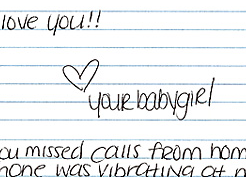 love you!!
your babygirl
ou missed calls from hom
hone was vibrating at